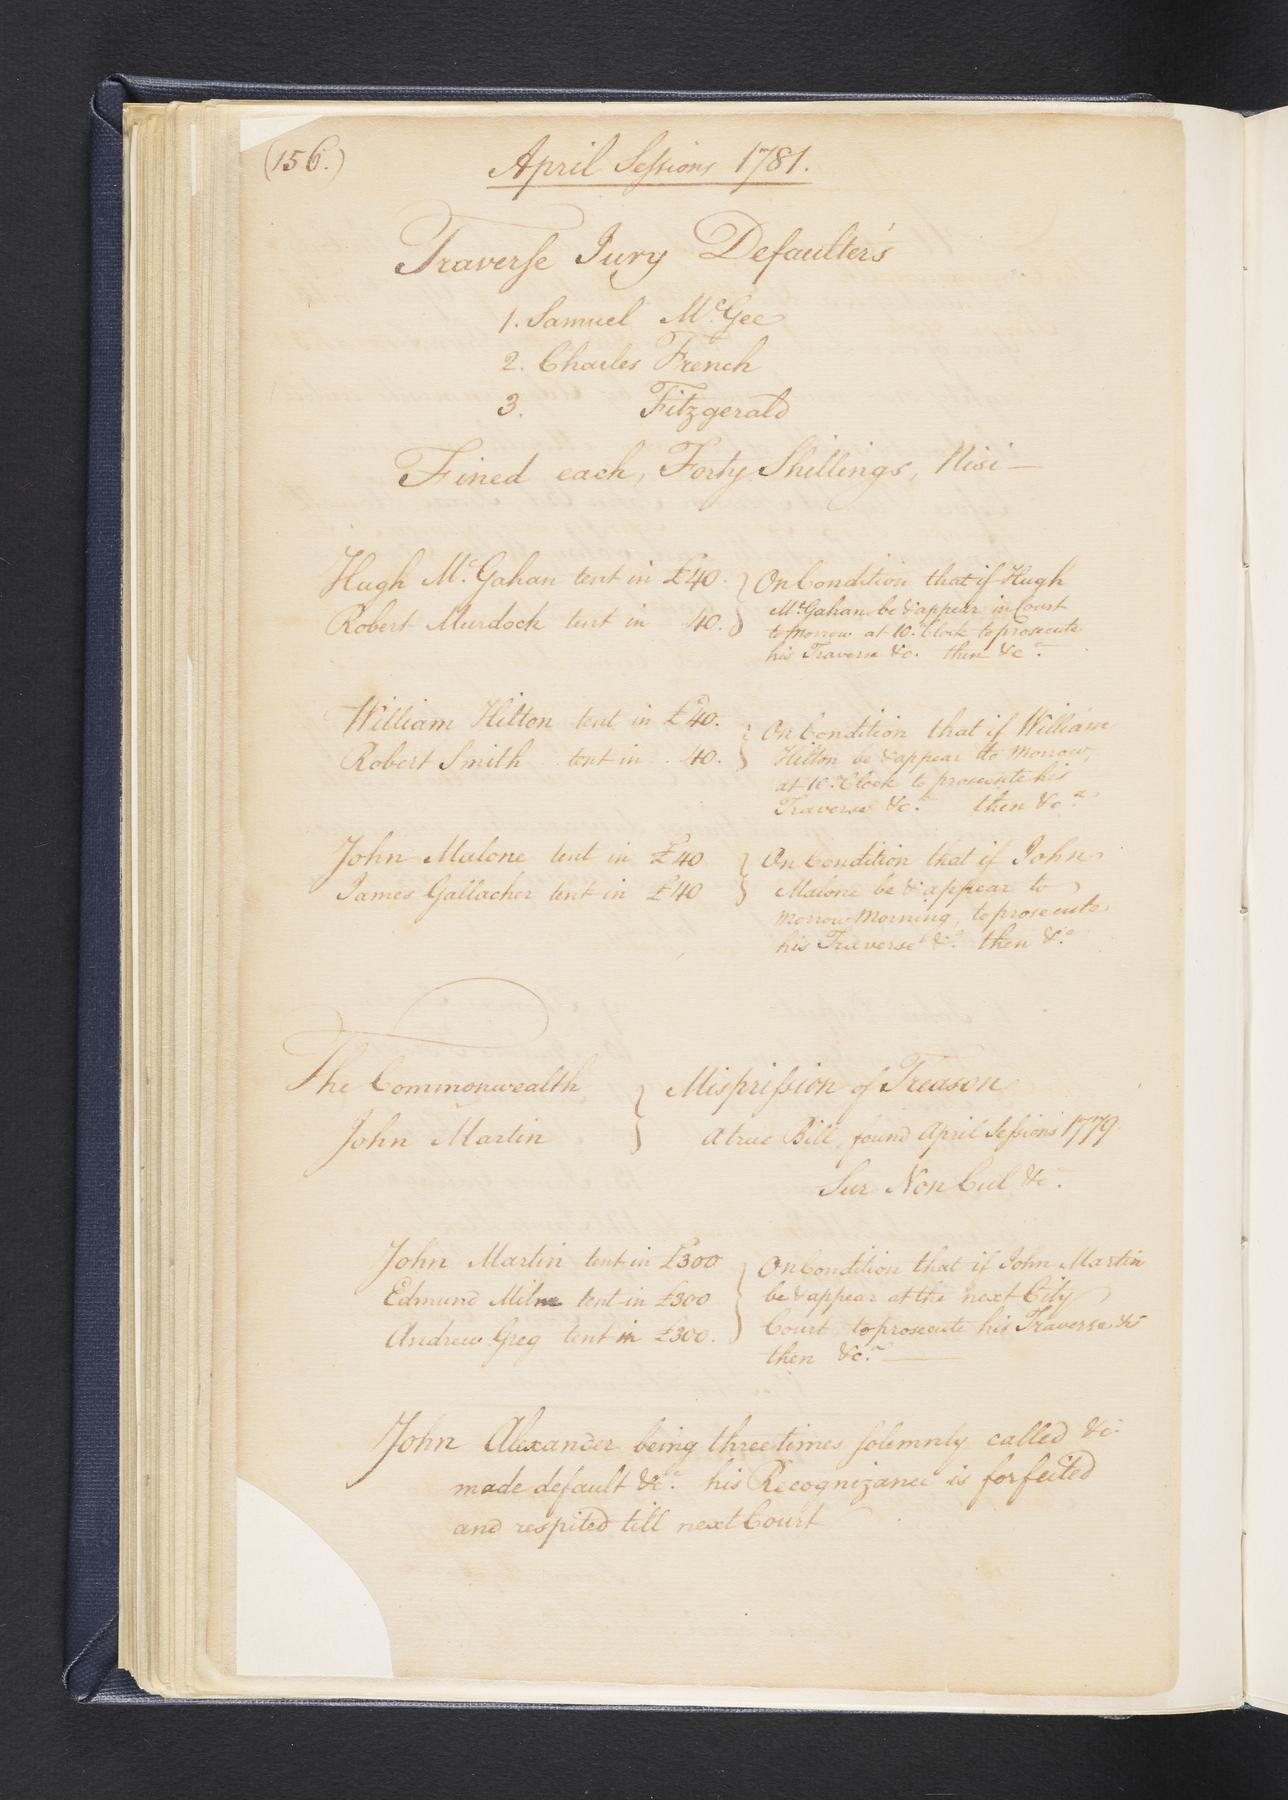 (156.)
April Sessions 1781.
Traverse Jury Defaulter's
1. Samuel McGee
2. Charles French
3. Fitzgerald
Fined each, Forty Shillings, Nisi —
Hugh McGahan tent in £40.
Robert Murdock tent in 40.
On Condition that if Hugh
McGahan be & appear in Court
to morrow at 10. Clock to prosecute
his Traverse &c. then &c.
William Hilton tent in £40.
Robert Smith tent in 40.
On Condition that if William
Hilton be & appear to Morrow,
at 10. Clock to prosecute his
Traverse &c. then &c.a
John Malone tent in £40
James Gallacher tent in £40
On Condition that if John
Malone be & appear to
Morrow Morning, to prosecute
his Traverse &c. then &c.
The Commonwealth
John Martin
Misprission of Treason
A true Bill, found April Sessions 1779.
Sur Non Cul &c.
John Martin tent in £300
Edmund Milne tent in £300
Andrew Greg tent in £300.
On Condition that if John Martin
be & appear at the next City
Court to prosecute his Traverse &c
then &c. —
John Alexander being three times solemnly called &c.
made default &c. his Recognizance is forfeited
and respited till next Court